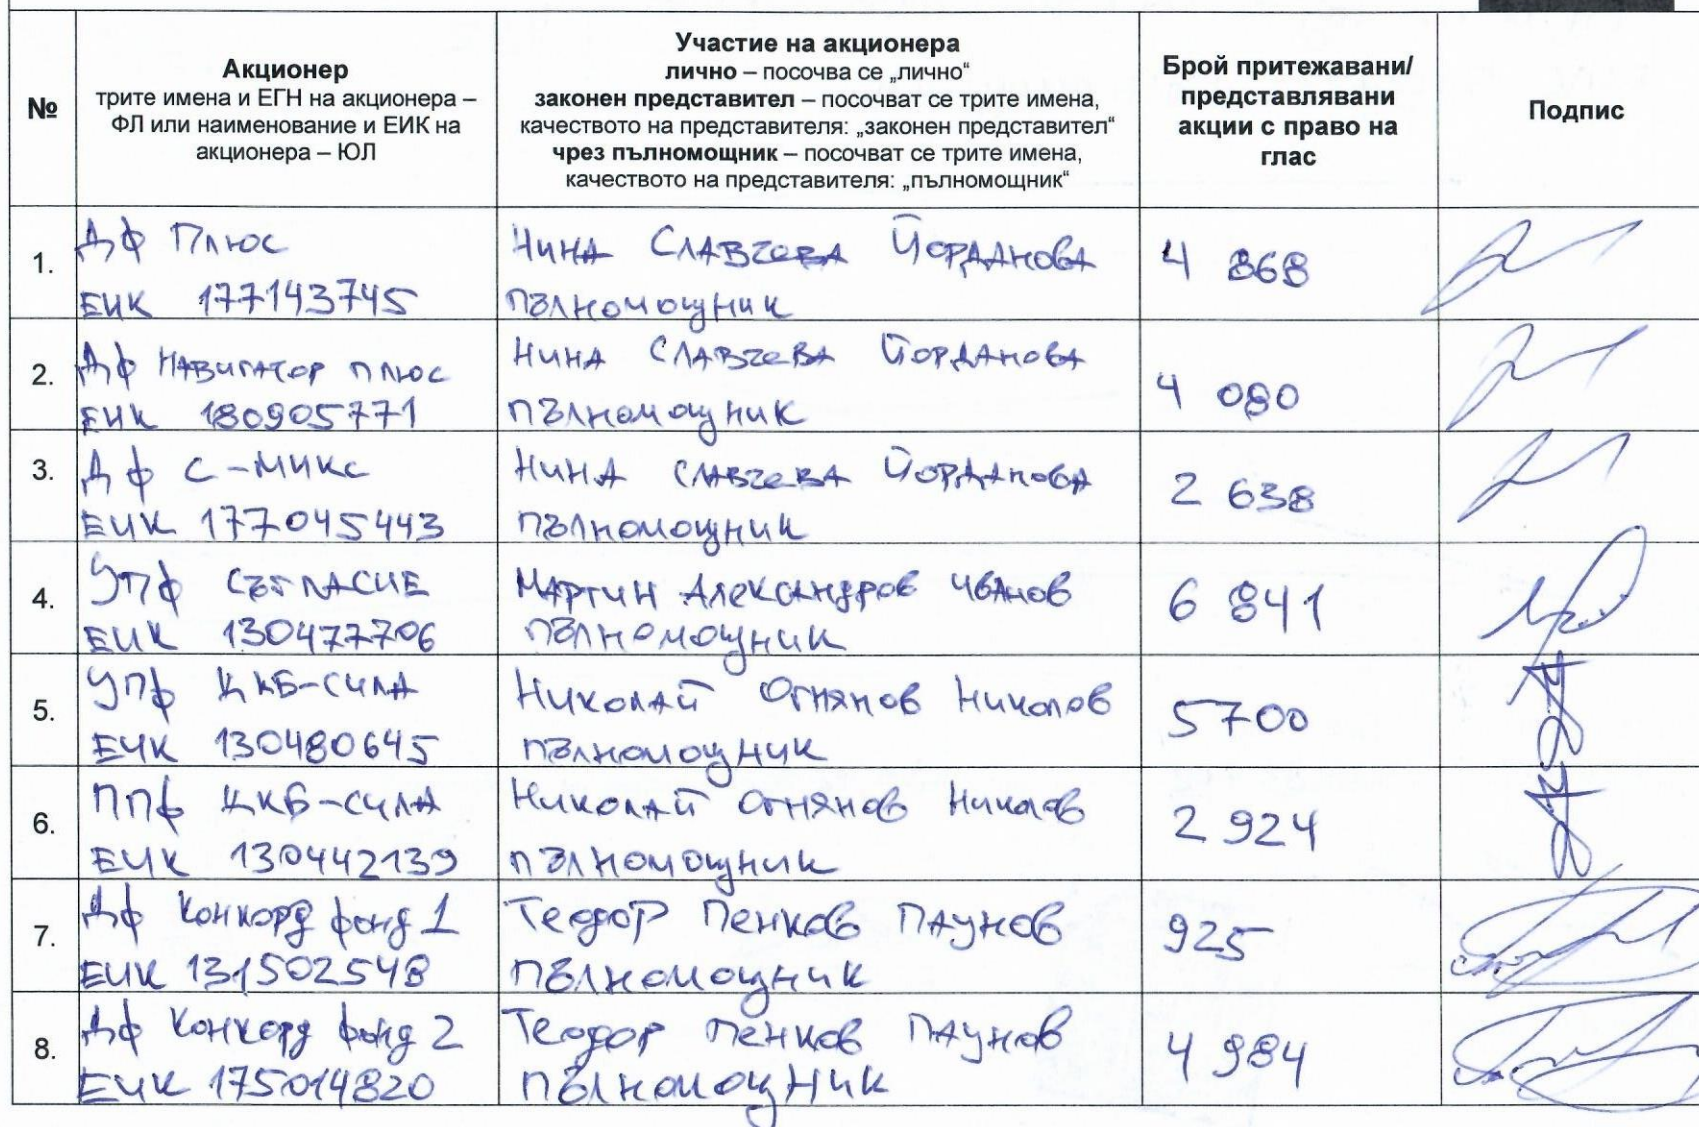 №
Акционер
трите имена и ЕГН на акционера –
ФЛ или наименование и ЕИК на
акционера – ЮЛ
Участие на акционера
лично – посочва се „лично“
законен представител – посочват се трите имена,
качеството на представителя: „законен представител“
чрез пълномощник – посочват се трите имена,
качеството на представителя: „пълномощник“
Брой притежавани/
представлявани
акции с право на
глас
Подпис
1.
ДФ Плюс
ЕИК 177143745
Нина Славчева Йорданова
пълномощник
4 868
2.
ДФ Навигатор плюс
ЕИК 180905771
Нина Славчева Йорданова
пълномощник
4 080
3.
ДФ С-Микс
ЕИК 177045443
Нина Славчева Йорданова
пълномощник
2 638
4.
УПФ Съгласие
ЕИК 130477706
Мартин Александров Иванов
пълномощник
6 841
5.
УПФ ЦКБ-Сила
ЕИК 130480645
Николай Огнянов Николов
пълномощник
5700
6.
ППФ ЦКБ-Сила
ЕИК 130442139
Николай Огнянов Николов
пълномощник
2 924
7.
ДФ Конкорд фонд 1
ЕИК 131502548
Теодор Пенков Паунов
пълномощник
925
8.
ДФ Конкорд фонд 2
ЕИК 175014820
Теодор Пенков Паунов
пълномощник
4 984